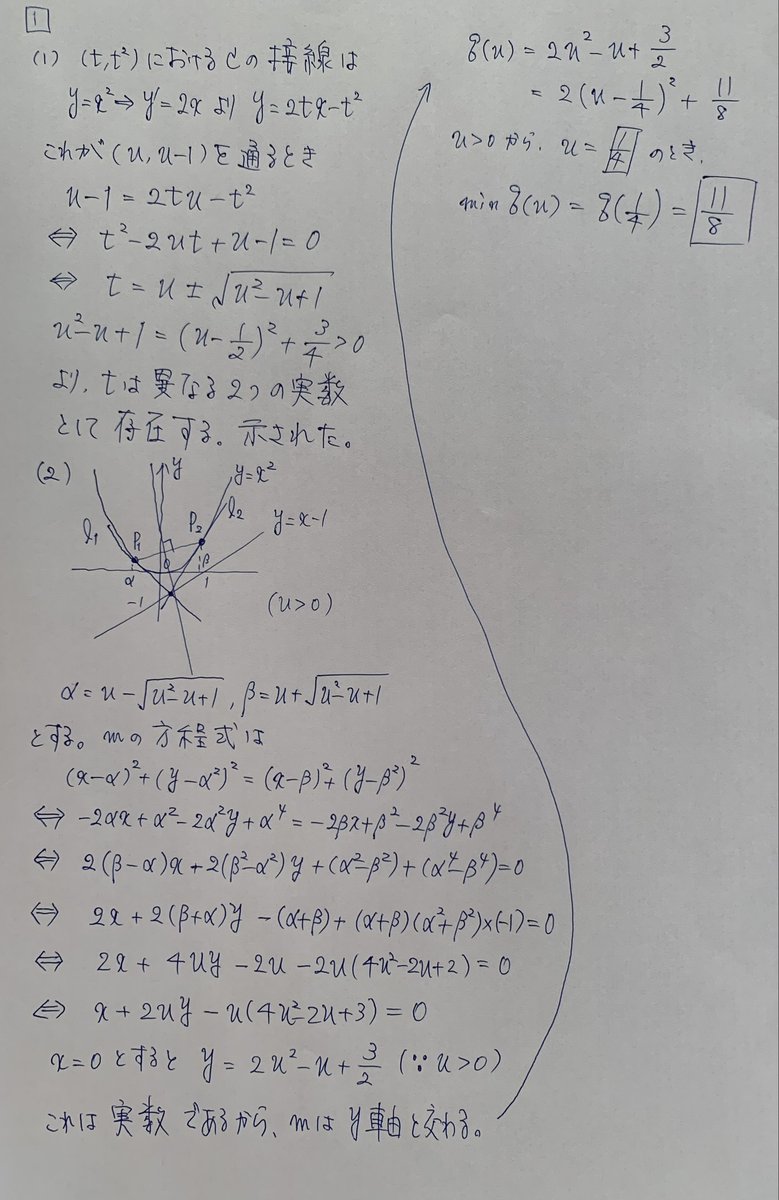 1
(1) (t, t²)におけるCの接線は
y=x²⇒y'=2xより y=2tx-t²
これが(u, u-1)を通るとき
u-1=2tu-t²
⇔ t²-2ut+u-1=0
⇔ t=u±√(u²-u+1)
u²-u+1=(u-1/2)²+3/4>0
より、tは異なる2つの実数
として存在する。示された。
(2)
y
y=x²
l₁
P₁
P₂
l₂
y=x-1
α
0
β
1
-1
(u>0)
α=u-√(u²-u+1), β=u+√(u²-u+1)
とする。mの方程式は
(x-α)²+(y-α²)²=(x-β)²+(y-β²)²
⇔ -2αx+α²-2α²y+α⁴=-2βx+β²-2β²y+β⁴
⇔ 2(β-α)x+2(β²-α²)y+(α²-β²)+(α⁴-β⁴)=0
⇔ 2x+2(β+α)y-(α+β)+(α+β)(α²+β²)×(-1)=0
⇔ 2x+4uy-2u-2u(4u²-2u+2)=0
⇔ x+2uy-u(4u²-2u+3)=0
x=0とすると y=2u²-u+3/2 (∵u>0)
これは実数であるから、mはy軸と交わる。
g(u)=2u²-u+3/2
=2(u-1/4)²+11/8
u>0から、u=1/4のとき、
min g(u)=g(1/4)=11/8